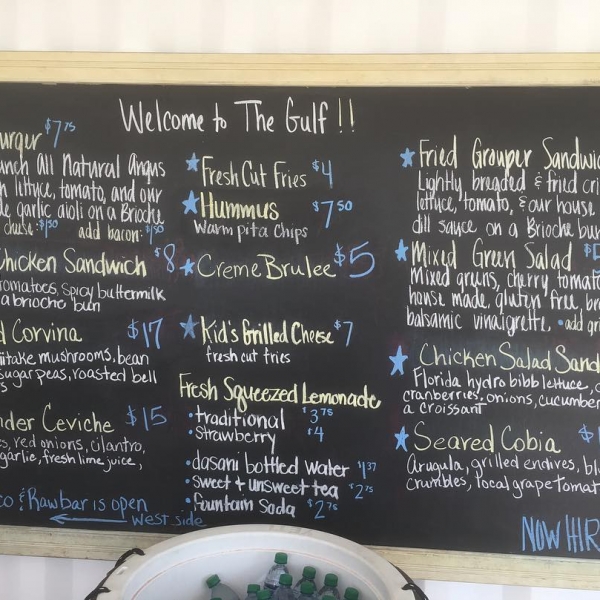 Welcome to The Gulf !!
$7.75
All Natural Angus
lettuce, tomato, and our
garlic aioli on a Brioche
cheese: $1.50 add bacon: $1.50
Chicken Sandwich $8
spicy buttermilk
a brioche bun
Corvina $17
mushrooms, bean
sugar peas, roasted bell
Ceviche $15
red onions, cilantro,
fresh lime juice,
& Rawbar is open
West side
Fresh Cut Fries $4
Hummus $7.50
warm pita chips
Creme Brulee $5
Kid's Grilled Cheese $7
fresh cut fries
Fresh Squeezed Lemonade
• traditional $3.75
• strawberry $4
• dasani bottled water $1.37
• sweet & unsweet tea $2.75
• fountain soda $2.75
Fried Grouper Sandwic
Lightly breaded & fried cri
lettuce, tomato, & our house
dill sauce on a Brioche bun
Mixed Green Salad $
Mixed greens, cherry tomato
house made, gluten free bre
balsamic vinaigrette, • add gri
Chicken Salad Sand
Florida hydro bibb lettuce, c
cranberries, onions, cucumber
a croissant
Seared Cobia $1
Arugula, grilled endives, bl
crumbles, local grape tomat
NOW HIR